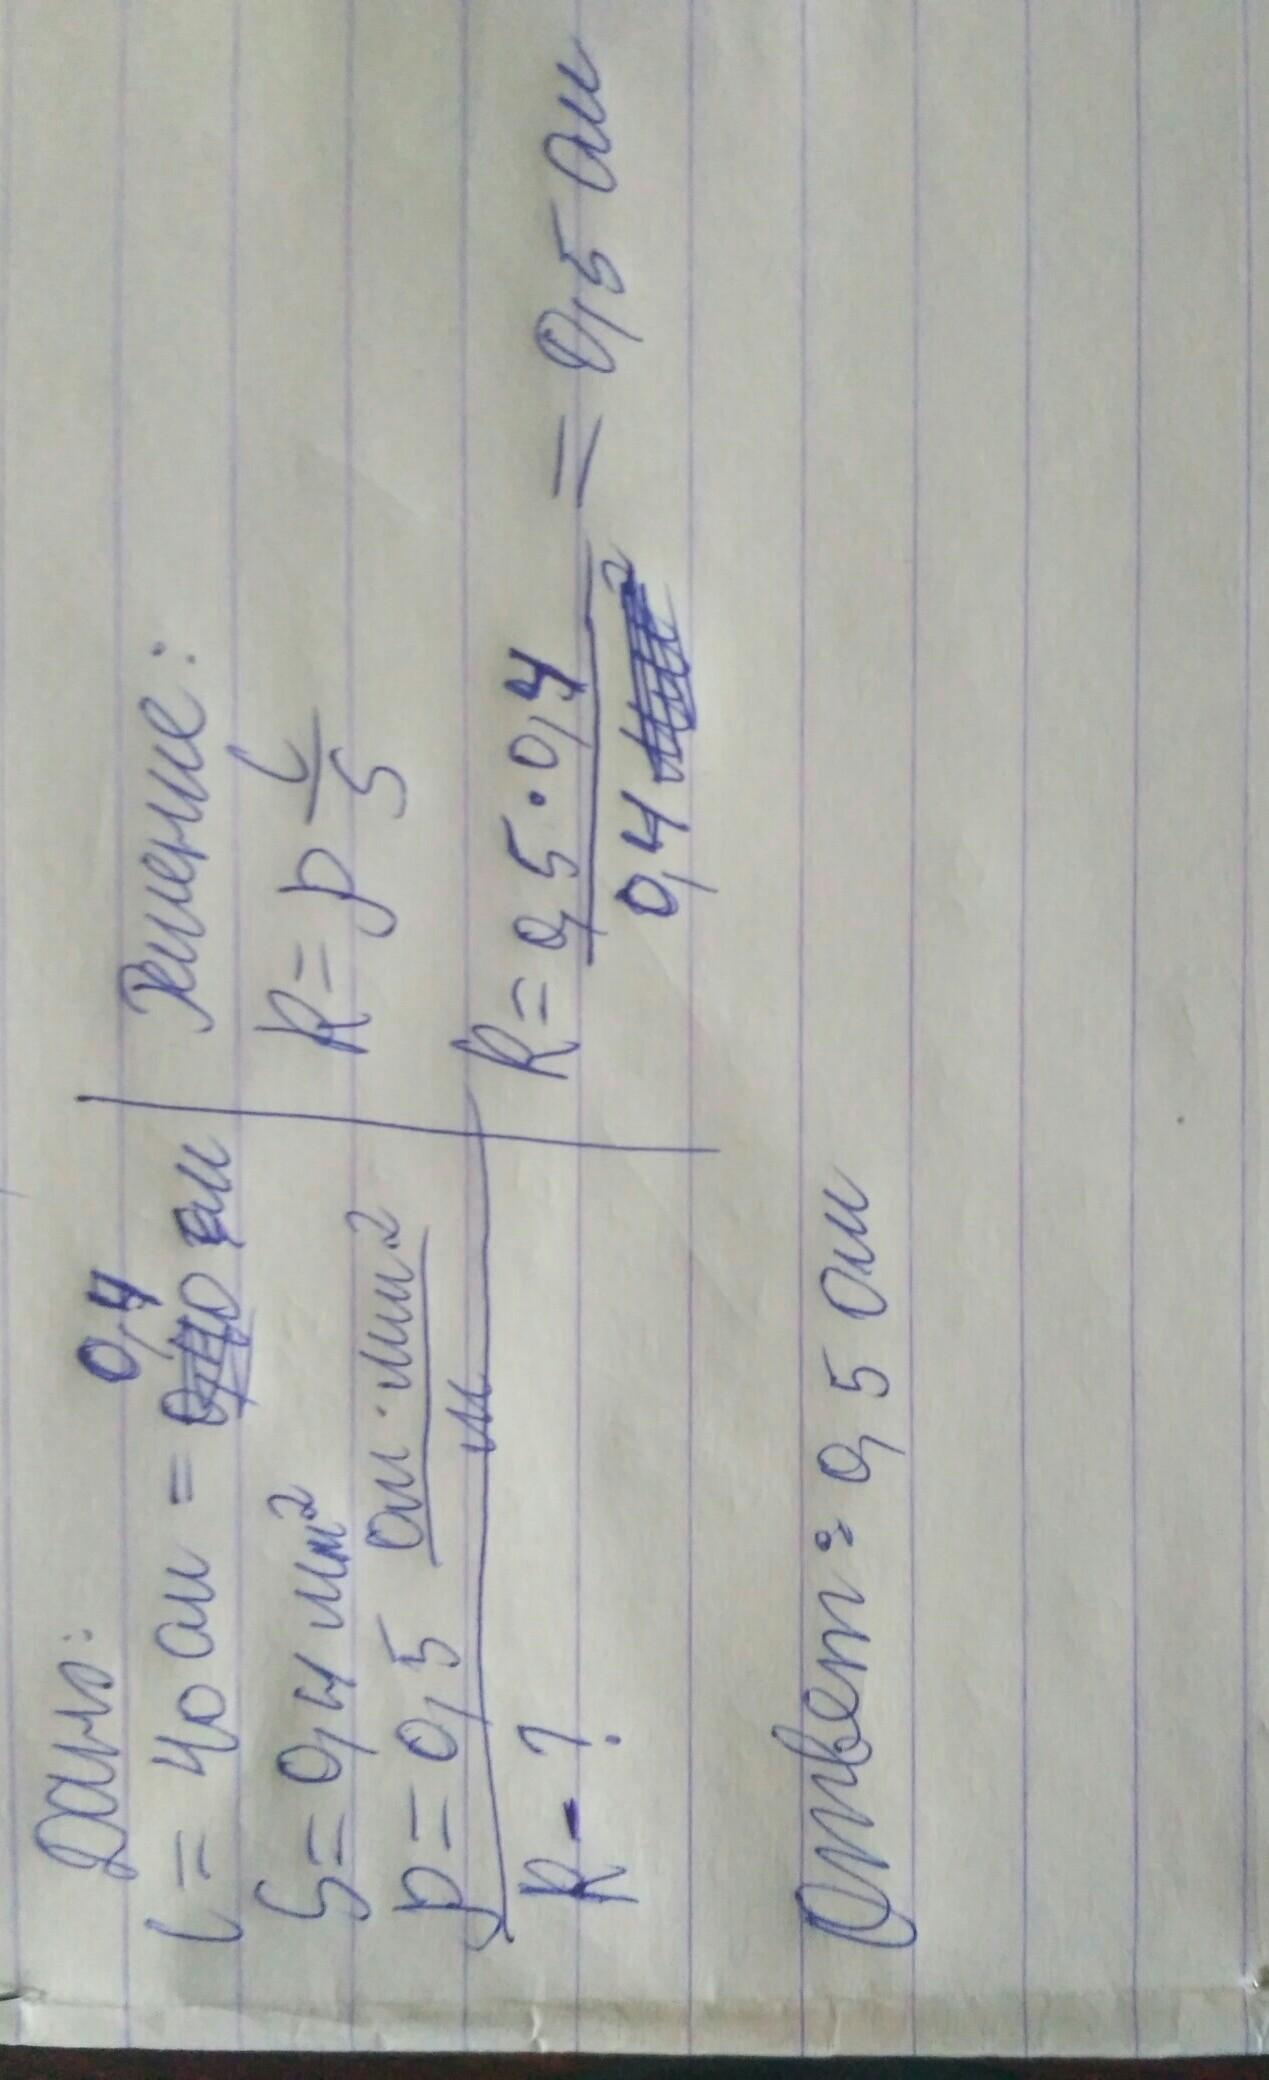 Дано:
l = 40 см = 0,4 м
S = 0,4 мм²
ρ = 0,5 Ом · мм² / м
R - ?
Решение:
R = ρ l / S
R = 0,5 · 0,4 / 0,4 = 0,5 Ом
Ответ: 0,5 Ом